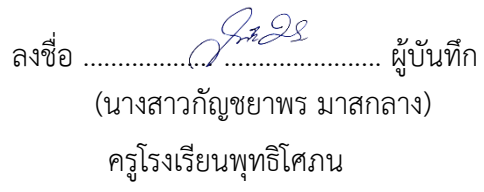 ลงชื่อ ........................................... ผู้บันทึก
(นางสาวกัญชยาพร มาสกลาง)
ครูโรงเรียนพุทธิโศภน